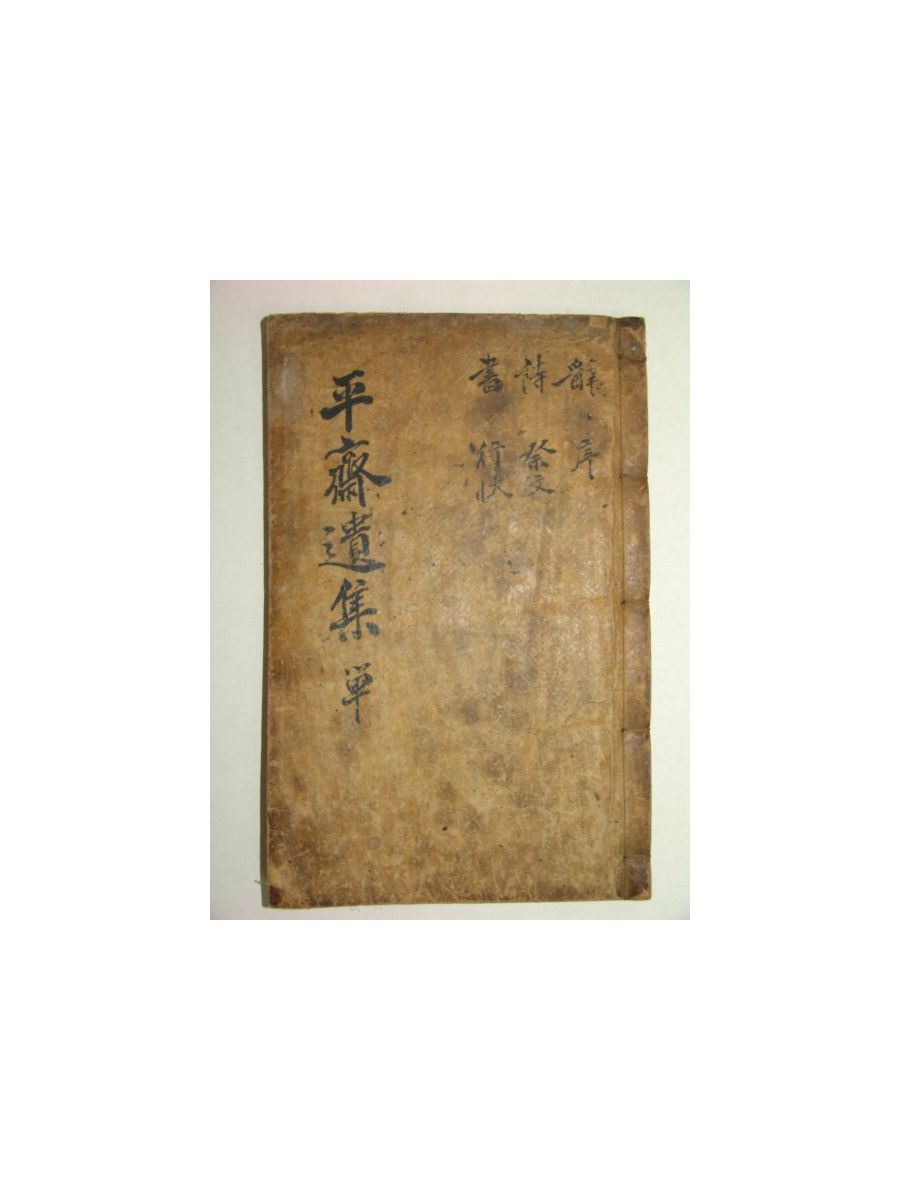 辭 序
詩 祭文
書 行狀
平齋遺集 単